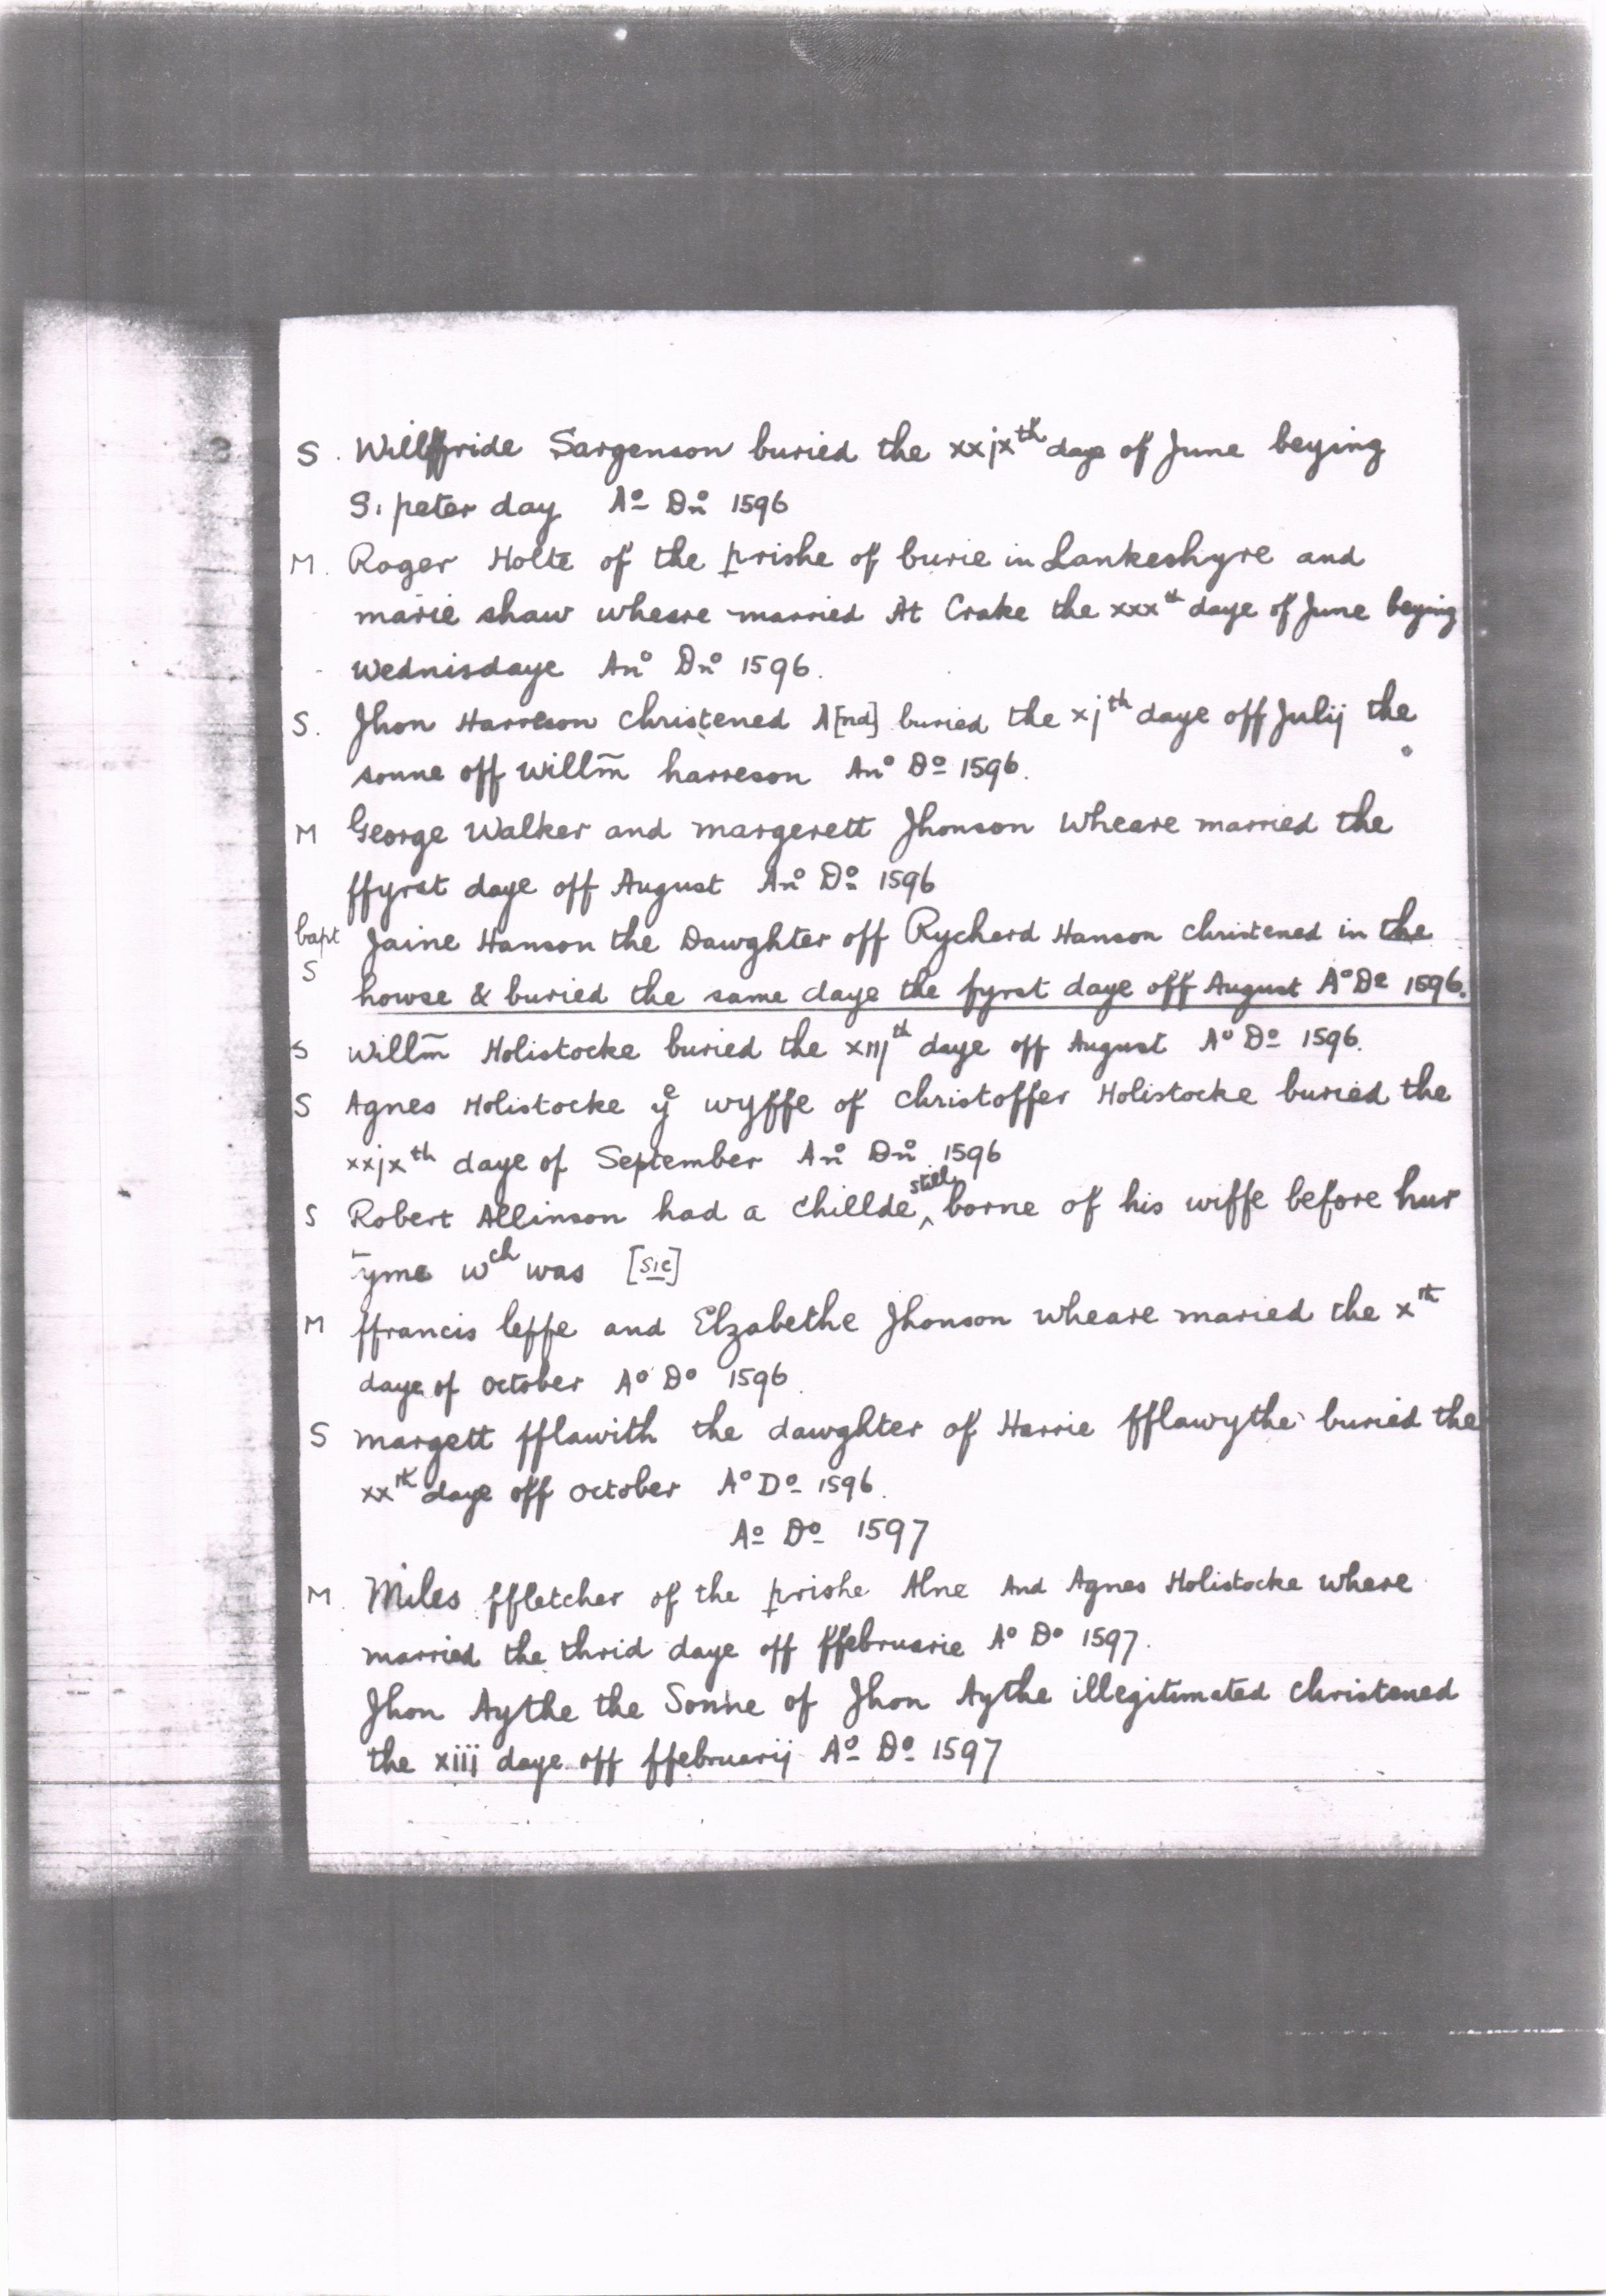 S. Willffride Sargenson buried the xxjxth daye of June beying
S. peter day Ao Dno 1596
M. Roger Holte of the prishe of burie in Lankeshyre and
marie shaw wheare married At Crake the xxxth daye of June beying
Wednisdaye Ano Dno 1596.
S. Jhon Harreson christened A[nd] buried the xjth daye off Julij the
sonne off willm̄ harreson Ano Do 1596.
M George Walker and margerett Jhonson wheare married the
ffyrst daye off August Ano Do 1596
bapt Jaine Hanson the Dawghter off Rycherd Hanson christened in the
S howse & buried the same daye the fyrst daye off August Ao De 1596.
S Willm̄ Holistocke buried the xiijth daye off August Ao Do 1596.
S Agnes Holistocke ye wyffe of christoffer Holistocke buried the
xxjxth daye of September Ano Dno 1596
S Robert Allinson had a chillde ^still borne of his wiffe before hur
tyme wch was [sic]
M ffrancis leffe and Elzabethe Jhonson wheare maried the xth
daye of october Ao Do 1596.
S margett fflawith the dawghter of Harrie fflawythe buried the
xxth daye off october Ao Do 1596.
Ao Do 1597
M. Miles ffletcher of the prishe Alne And Agnes Holistocke where
married the thrid daye off ffebruarie Ao Do 1597.
Jhon Aythe the Sonne of Jhon Aythe illegitimated christened
the xiij daye off ffebruarij Ao Do 1597